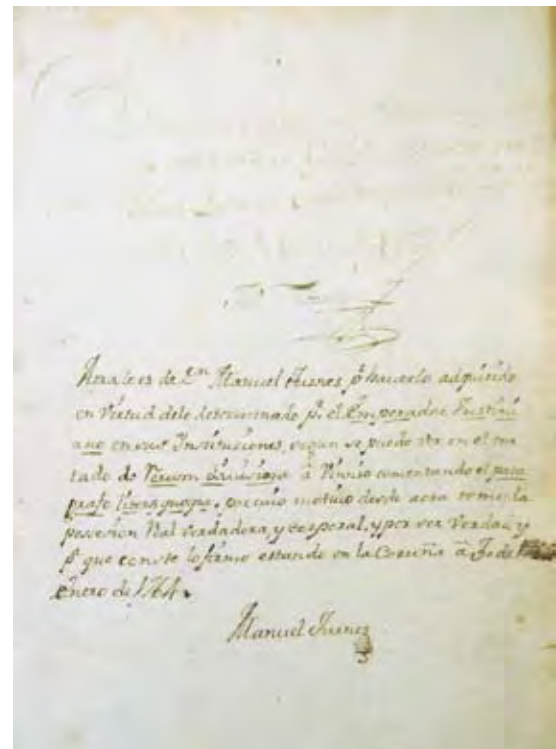 Aora lo es de Dn Manuel Tuenes pr haverlo adquirido
en virtud delo determinado pr el Emperador Justini
ano en sus Instituciones, segun se puede ver en el tra
tado de Rerum Divisione à Vinnio comentando el para
grafo literaquoque, por cuio motivo desde aora tomó la
posesion Real verdadera, y corporal, y por ser verdad, y
pa que conste lo firmo estando en la Coruña à 30 de
Enero de 1764.
Manuel Tuenes